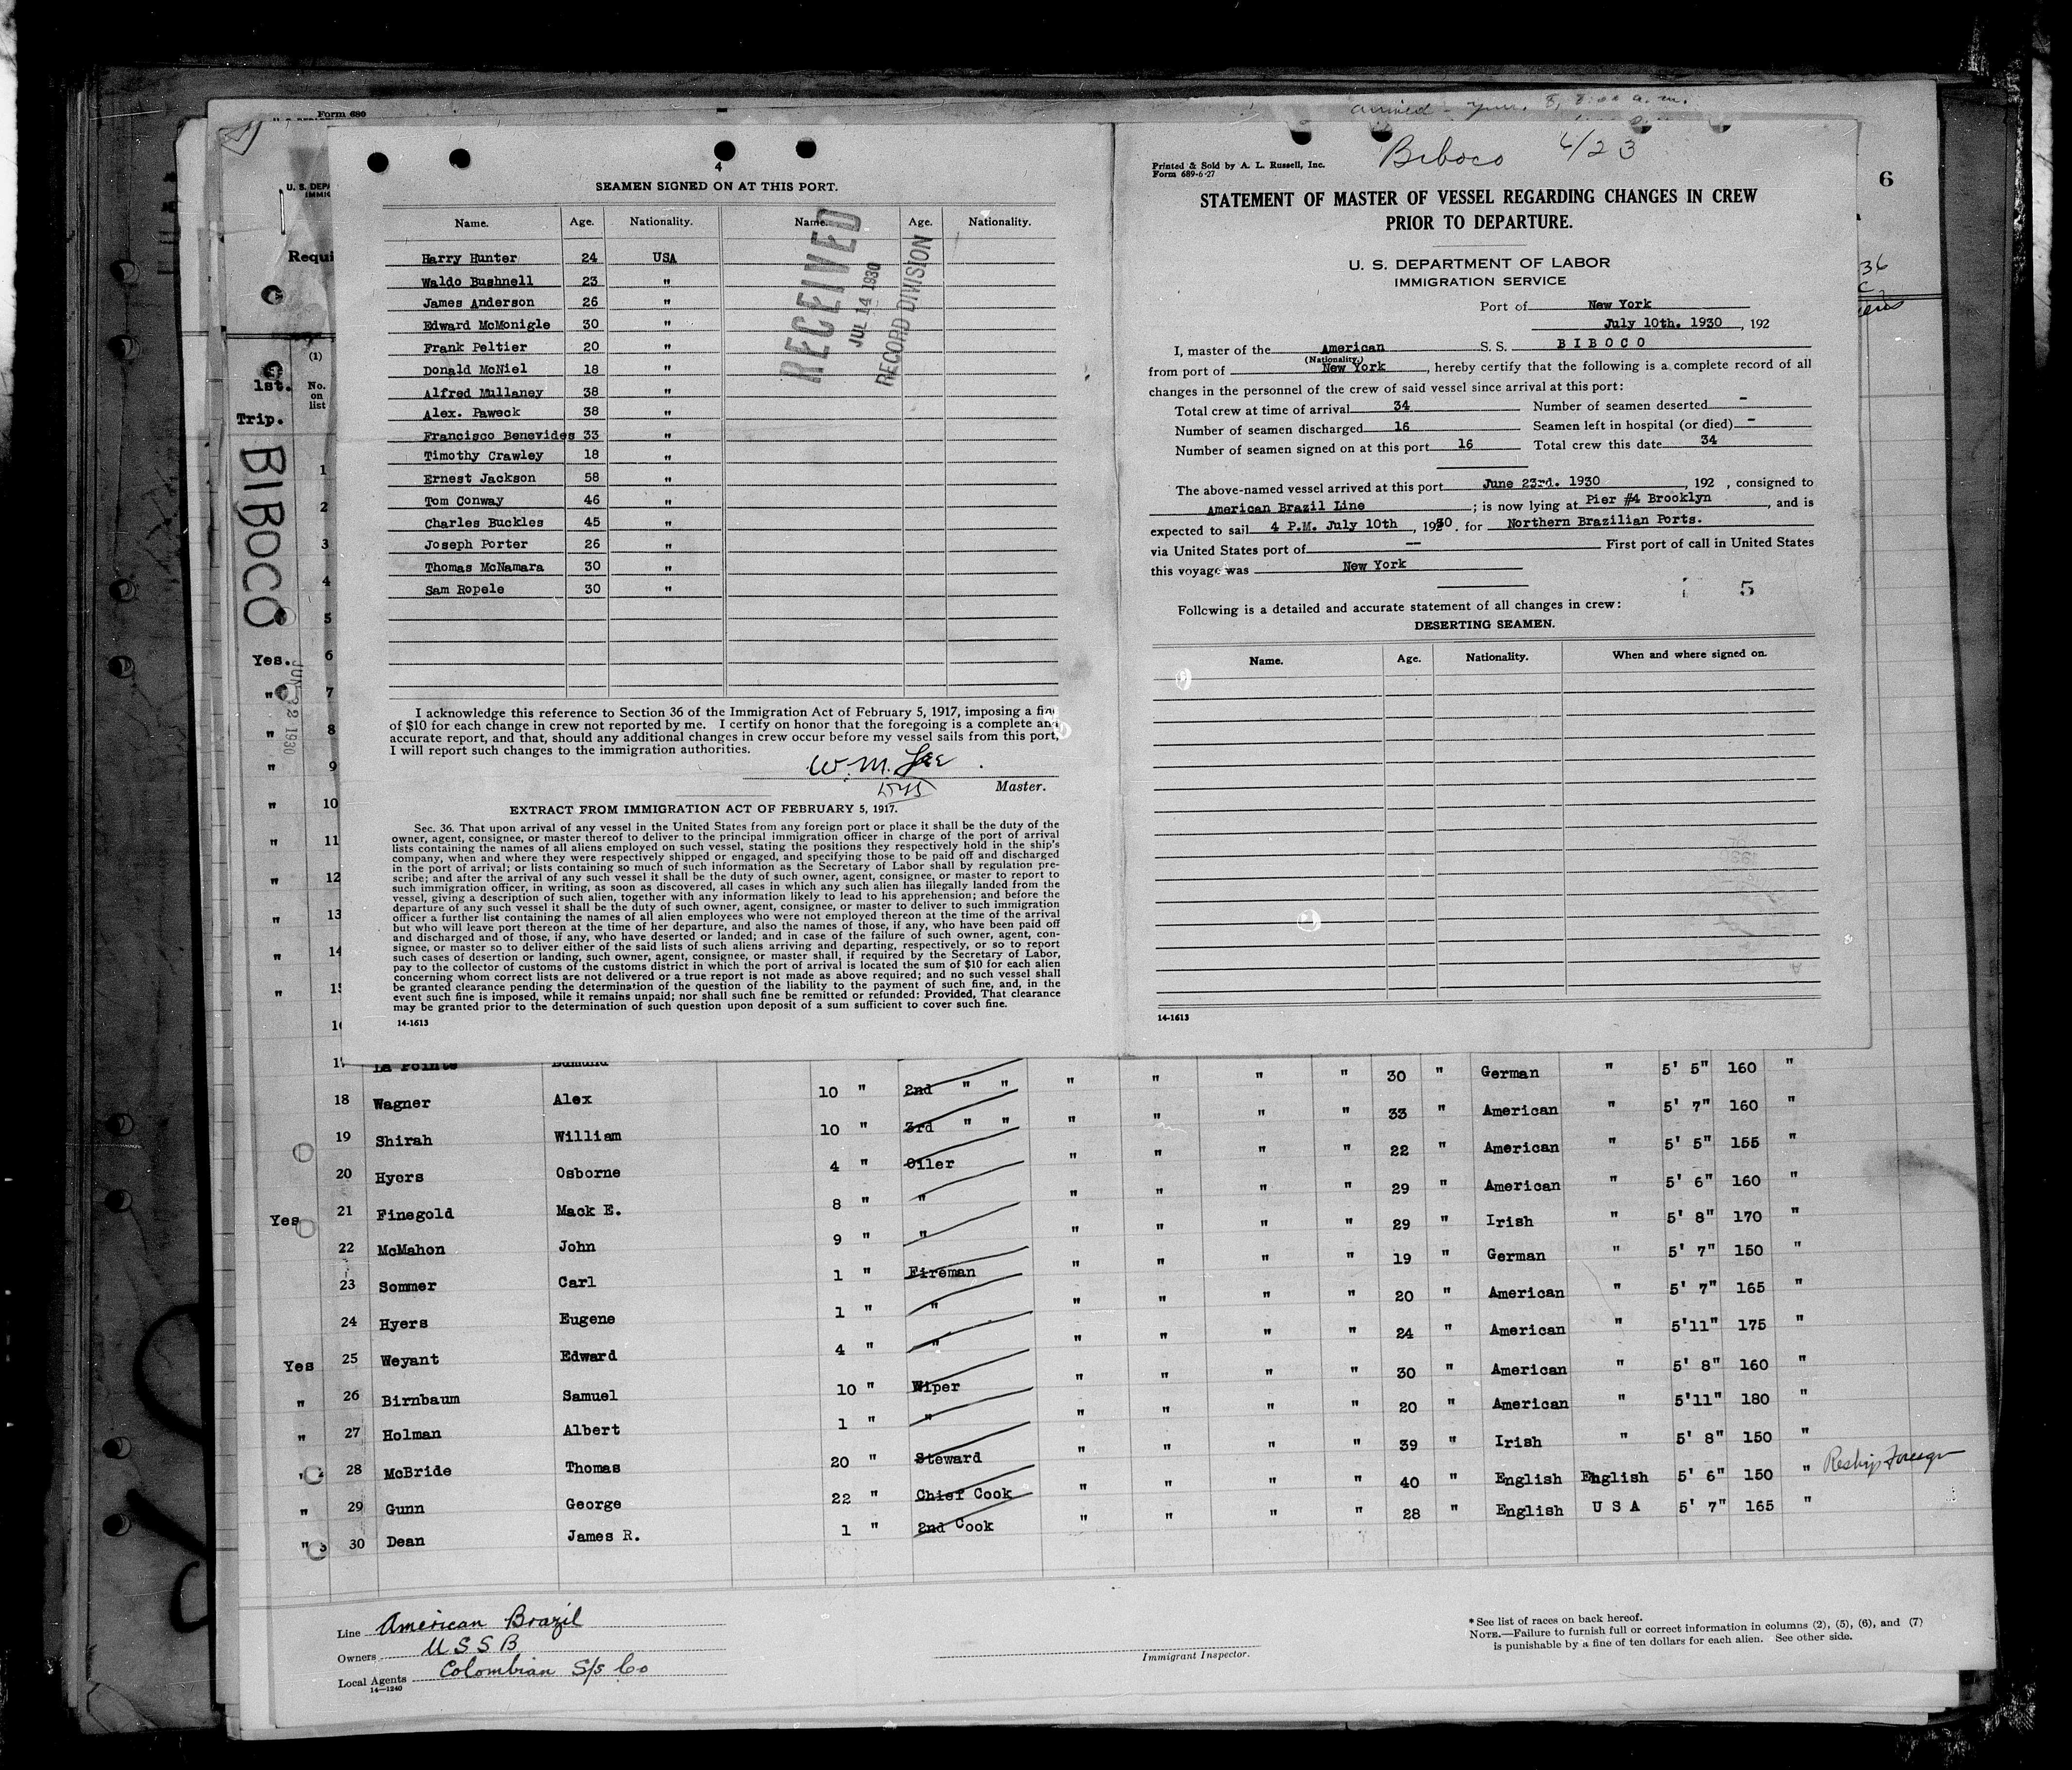 Form 680
arrived
U. S. DEPA
IMMIG
Requi
1st.
Trip.
(1)
No.
on
list
BIBOCO
JUN 22 1930
6
36
4
SEAMEN SIGNED ON AT THIS PORT.
Name. Age. Nationality. Name. Age. Nationality.
Harry Hunter 24 USA
Waldo Bushnell 23 "
James Anderson 26 "
Edward McMonigle 30 "
Frank Peltier 20 "
Donald McNiel 18 "
Alfred Mullaney 38 "
Alex. Paweck 38 "
Francisco Benevides 33 "
Timothy Crawley 18 "
Ernest Jackson 58 "
Tom Conway 46 "
Charles Buckles 45 "
Joseph Porter 26 "
Thomas McNamara 30 "
Sam Ropele 30 "
RECEIVED
JUL 14 1930
RECORD DIVISION
I acknowledge this reference to Section 36 of the Immigration Act of February 5, 1917, imposing a fine
of $10 for each change in crew not reported by me. I certify on honor that the foregoing is a complete and
accurate report, and that, should any additional changes in crew occur before my vessel sails from this port,
I will report such changes to the immigration authorities.
W. M. Lee
Master.
EXTRACT FROM IMMIGRATION ACT OF FEBRUARY 5, 1917.
Sec. 36. That upon arrival of any vessel in the United States from any foreign port or place it shall be the duty of the
owner, agent, consignee, or master thereof to deliver to the principal immigration officer in charge of the port of arrival
lists containing the names of all aliens employed on such vessel, stating the positions they respectively hold in the ship's
company, when and where they were respectively shipped or engaged, and specifying those to be paid off and discharged
in the port of arrival; or lists containing so much of such information as the Secretary of Labor shall by regulation pre-
scribe; and after the arrival of any such vessel it shall be the duty of such owner, agent, consignee, or master to report to
such immigration officer, in writing, as soon as discovered, all cases in which any such alien has illegally landed from the
vessel, giving a description of such alien, together with any information likely to lead to his apprehension; and before the
departure of any such vessel it shall be the duty of such owner, agent, consignee, or master to deliver to such immigration
officer a further list containing the names of all alien employees who were not employed thereon at the time of the arrival
but who will leave port thereon at the time of her departure, and also the names of those, if any, who have been paid off
and discharged and of those, if any, who have deserted or landed; and in case of the failure of such owner, agent, con-
signee, or master so to deliver either of the said lists of such aliens arriving and departing, respectively, or so to report
such cases of desertion or landing, such owner, agent, consignee, or master shall, if required by the Secretary of Labor,
pay to the collector of customs of the customs district in which the port of arrival is located the sum of $10 for each alien
concerning whom correct lists are not delivered or a true report is not made as above required; and no such vessel shall
be granted clearance pending the determination of the question of the liability to the payment of such fine, and, in the
event such fine is imposed, while it remains unpaid; nor shall such fine be remitted or refunded: Provided, That clearance
may be granted prior to the determination of such question upon deposit of a sum sufficient to cover such fine.
14-1613
Biboco 6/23
Printed & Sold by A. L. Russell, Inc.
Form 689-6-27
STATEMENT OF MASTER OF VESSEL REGARDING CHANGES IN CREW
PRIOR TO DEPARTURE.
U. S. DEPARTMENT OF LABOR
IMMIGRATION SERVICE
Port of New York
July 10th. 1930, 192
I, master of the American S. S. BIBOCO
(Nationality.)
from port of New York, hereby certify that the following is a complete record of all
changes in the personnel of the crew of said vessel since arrival at this port:
Total crew at time of arrival 34 Number of seamen deserted -
Number of seamen discharged 16 Seamen left in hospital (or died) -
Number of seamen signed on at this port 16 Total crew this date 34
The above-named vessel arrived at this port June 23rd. 1930, 192 , consigned to
American Brazil Line; is now lying at Pier #4 Brooklyn, and is
expected to sail 4 P.M. July 10th, 1930. for Northern Brazilian Ports.
via United States port of -- First port of call in United States
this voyage was New York
5
Following is a detailed and accurate statement of all changes in crew:
DESERTING SEAMEN.
Name. Age. Nationality. When and where signed on.
14-1613
1
2
3
4
5
Yes. 6
" 7
" 8
" 9
" 10
" 11
" 12
" 13
" 14
" 15
La Pointe Edmund
18 Wagner Alex 10 " 2nd " " " " " " 30 " German " 5' 5" 160 "
19 Shirah William 10 " 3rd " " " " " " 33 " American " 5' 7" 160 "
20 Hyers Osborne 4 " Oiler " " " " 22 " American " 5' 5" 155 "
Yes 21 Finegold Mack E. 8 " " " " " " 29 " American " 5' 6" 160 "
22 McMahon John 9 " " " " " " 29 " Irish " 5' 8" 170 "
23 Sommer Carl 1 " Fireman " " " " 19 " German " 5' 7" 150 "
24 Hyers Eugene 1 " " " " " " 20 " American " 5' 7" 165 "
Yes 25 Weyant Edward 4 " " " " " " 24 " American " 5'11" 175 "
" 26 Birnbaum Samuel 10 " Wiper " " " " 30 " American " 5' 8" 160 "
" 27 Holman Albert 1 " " " " " " 20 " American " 5'11" 180 "
" 28 McBride Thomas 20 " Steward " " " " 39 " Irish " 5' 8" 150 "
" 29 Gunn George 22 " Chief Cook " " " " 40 " English English 5' 6" 150 " Reship Foreign
" 30 Dean James R. 1 " 2nd Cook " " " " 28 " English U S A 5' 7" 165 "
Line American Brazil
Owners U S S B
Local Agents Colombian S/S Co
14-1240
Immigrant Inspector.
* See list of races on back hereof.
NOTE.—Failure to furnish full or correct information in columns (2), (5), (6), and (7)
is punishable by a fine of ten dollars for each alien. See other side.